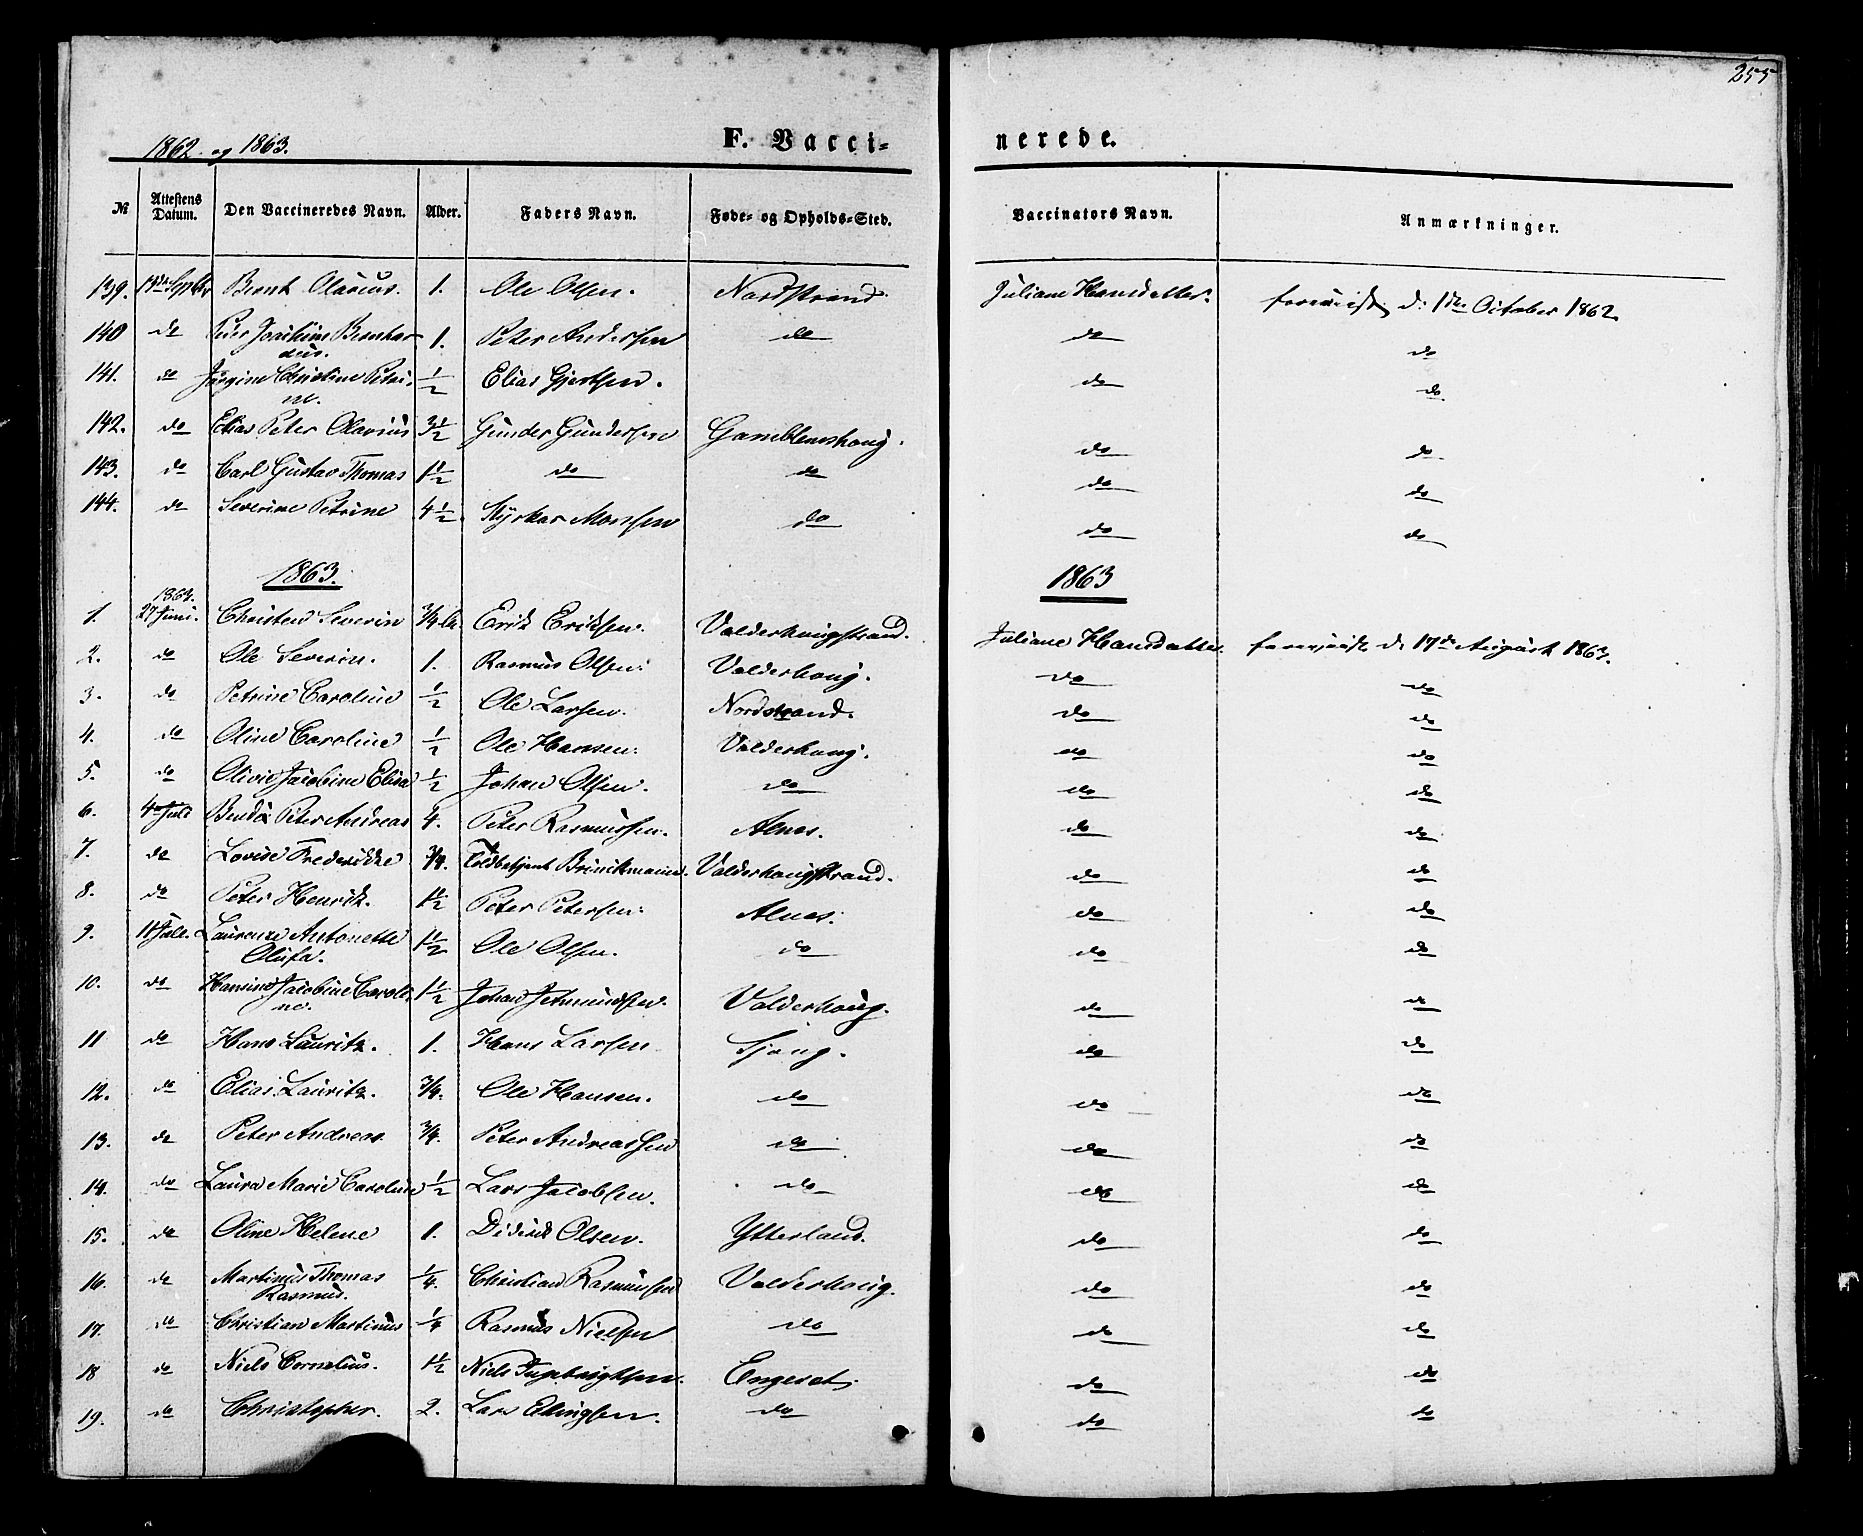 255
1862. og 1863.
F. Vacci=
nerede.
№ Attestens Datum. Den Vaccineredes Navn. Alder. Faders Navn. Føde- og Opholds-Sted. Vaccinators Navn. Anmærkninger.
139. Septbr Bernt Olavus. 1. Ole Olsen. Nordstrand Juliane Hansdatter. foreviist d. 1ste October 1862.
140 do Peter Joachim Bernhar 1. Peter Andersen do do do
dus.
141. do Jørgine Christine Petri- ½ Elias Gjertsen. do do
ne.
142. do Elias Peter Olavius 3½ Gunder Gundersen Gamblemshoug. do do
143. do Carl Gustav Thomas 1½ do do do do
144. do Severine Petrine 4½ Styrkar Monsen do do do
1863. 1863
1863.
1. 27 Juni. Christen Severin 3/4 Erik Eriksen. Valderhougstrand. Juliane Hansdatter. foreviist d. 17de August 1863.
2. do Ole Severin. 1. Rasmus Olsen. Valderhoug. do do
3. do Petrine Caroline ½ Ole Larsen. Nordstrand. do do
4. do Oline Caroline ½ Ole Hansen. Valderhoug. do do
5. do Olivie Jacobine Elisa ½ Johan Olsen. do do do
6. 4 Juli Bendix Peter Andreas 4. Peter Rasmussen. Alnes. do do
7. do Lovise Frederikke 3/4. Toldbetjent Brinchmann. Valderhougstrand. do do
8. do Peter Henrik. 1½ Peter Petersen. Alnes. do do
9. 11 Juli. Laurenze Antonette 1½ Ole Olsen. do do do
Olufa.
10. do Hansine Jacobine Caroli- 1½ Johan Jetmundsen. Valderhoug. do do
ne.
11 do Hans Lauritz. 1. Hans Larsen Sjong. do do
12. do Elias Lauritz. 3/4. Ole Hansen. do do do
13. do Peter Andreas 3/4. Peter Andreassen do do do
14. do Laura Marie Caroline ½ Lars Jacobsen. do do do
15. do Oline Helene 1. Diderik Olsen. Ytterland. do do
16. do Martinus Thomas ¼. Christian Rasmussen Valderhoug. do do
Rasmus.
17. do Christian Martinus ¼ Rasmus Nielsen do do do
18 do Niels Cornelius. 1½ Niels Ingebrigtsen. Engeset. do do
19. do Christopher. 2. Lars Ellingsen. do do do